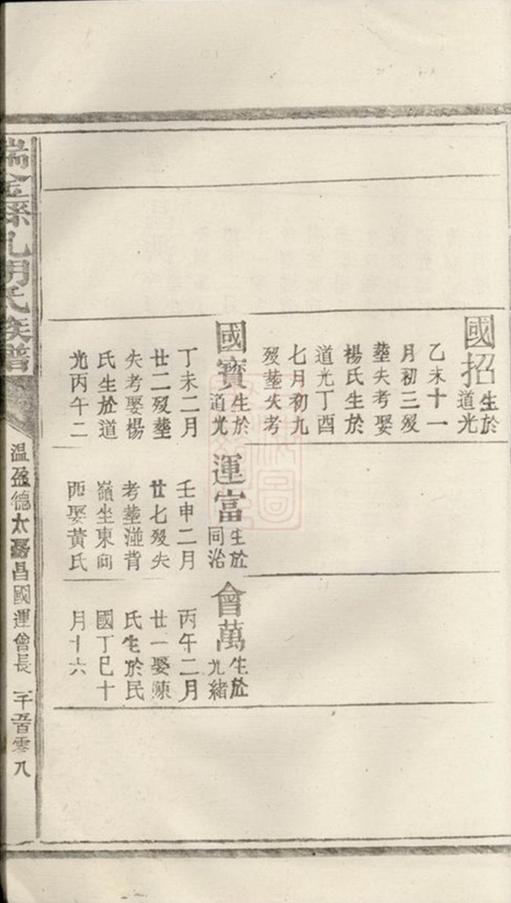 國招生於
道光
乙未十一
月初三殁
塟失考娶
楊氏生於
道光丁酉
七月初九
殁塟失考
國寳生於
道光
丁未二月
廿二殁塟
失考娶楊
氏生於道
光丙午二
運富生於
同治
壬申二月
廿七殁失
考塟湴背
嶺坐東向
西娶黄氏
會萬生於
光緒
丙午二月
廿一娶陳
氏生於民
國丁巳十
月十六
瑞金縣九
氏族譜
温盈德太
昌國運會長
零八